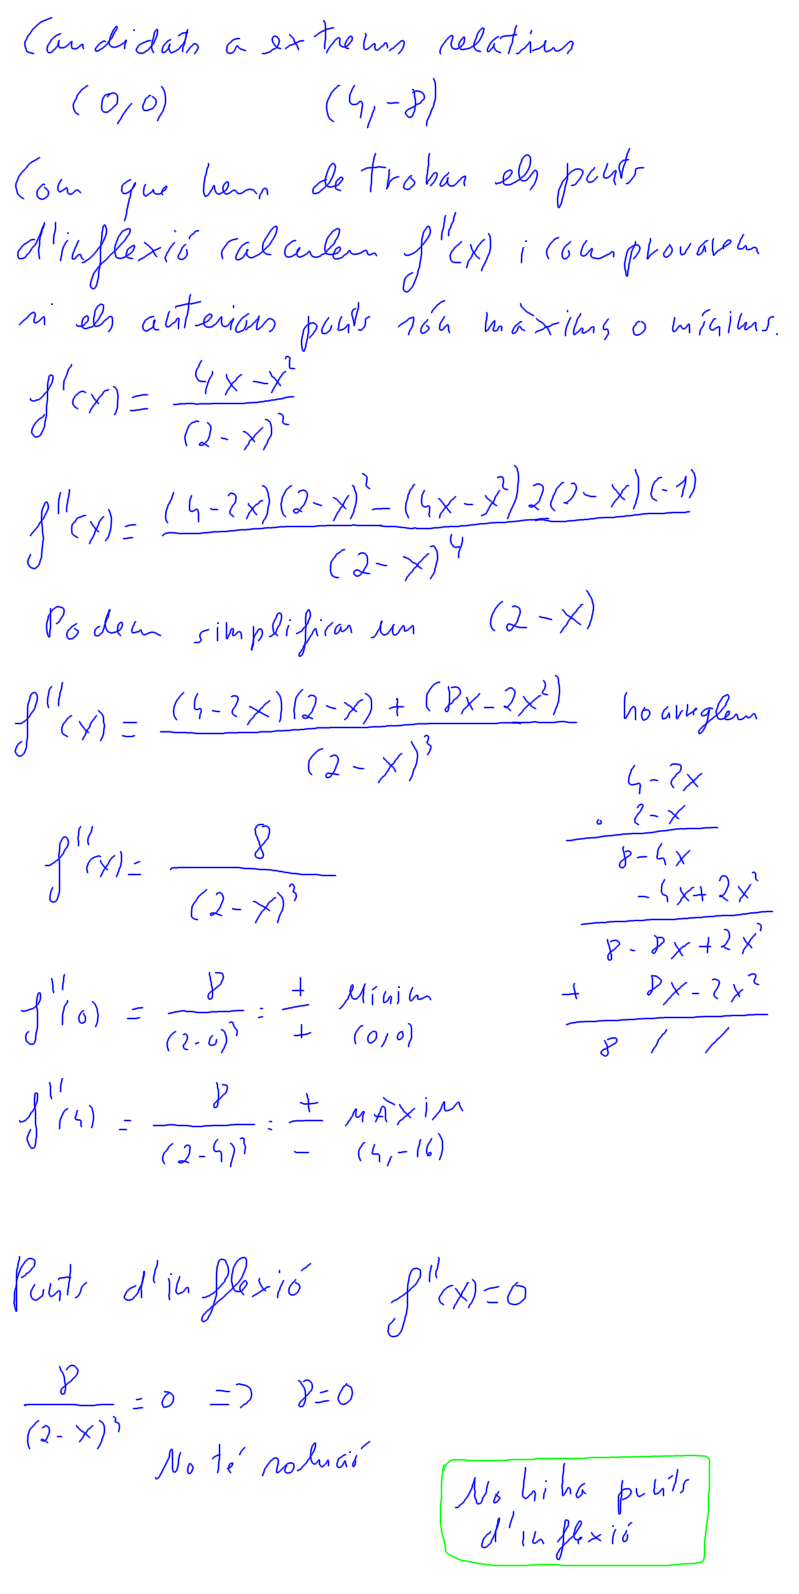 Candidats a extrems relatius
(0,0) (4,-8)
Com que hem de trobar els punts
d'inflexió calculem f''(x) i comprovarem
si els anteriors punts són màxims o mínims.
f'(x) = (4x-x²)/(2-x)²
f''(x) = ((4-2x)(2-x)² - (4x-x²)2(2-x)(-1))/(2-x)⁴
Podem simplificar un (2-x)
f''(x) = ((4-2x)(2-x) + (8x-2x²))/(2-x)³ ho arreglem
4-2x
· 2-x
8-4x
-4x+2x²
8-8x+2x²
+ 8x-2x²
8 / /
f''(x) = 8/(2-x)³
f''(0) = 8/(2-0)³ = +/+ Mínim (0,0)
f''(4) = 8/(2-4)³ = +/- MÀXIM (4,-16)
Punts d'inflexió f''(x)=0
8/(2-x)³ = 0 => 8=0
No té solució
No hi ha punts
d'inflexió